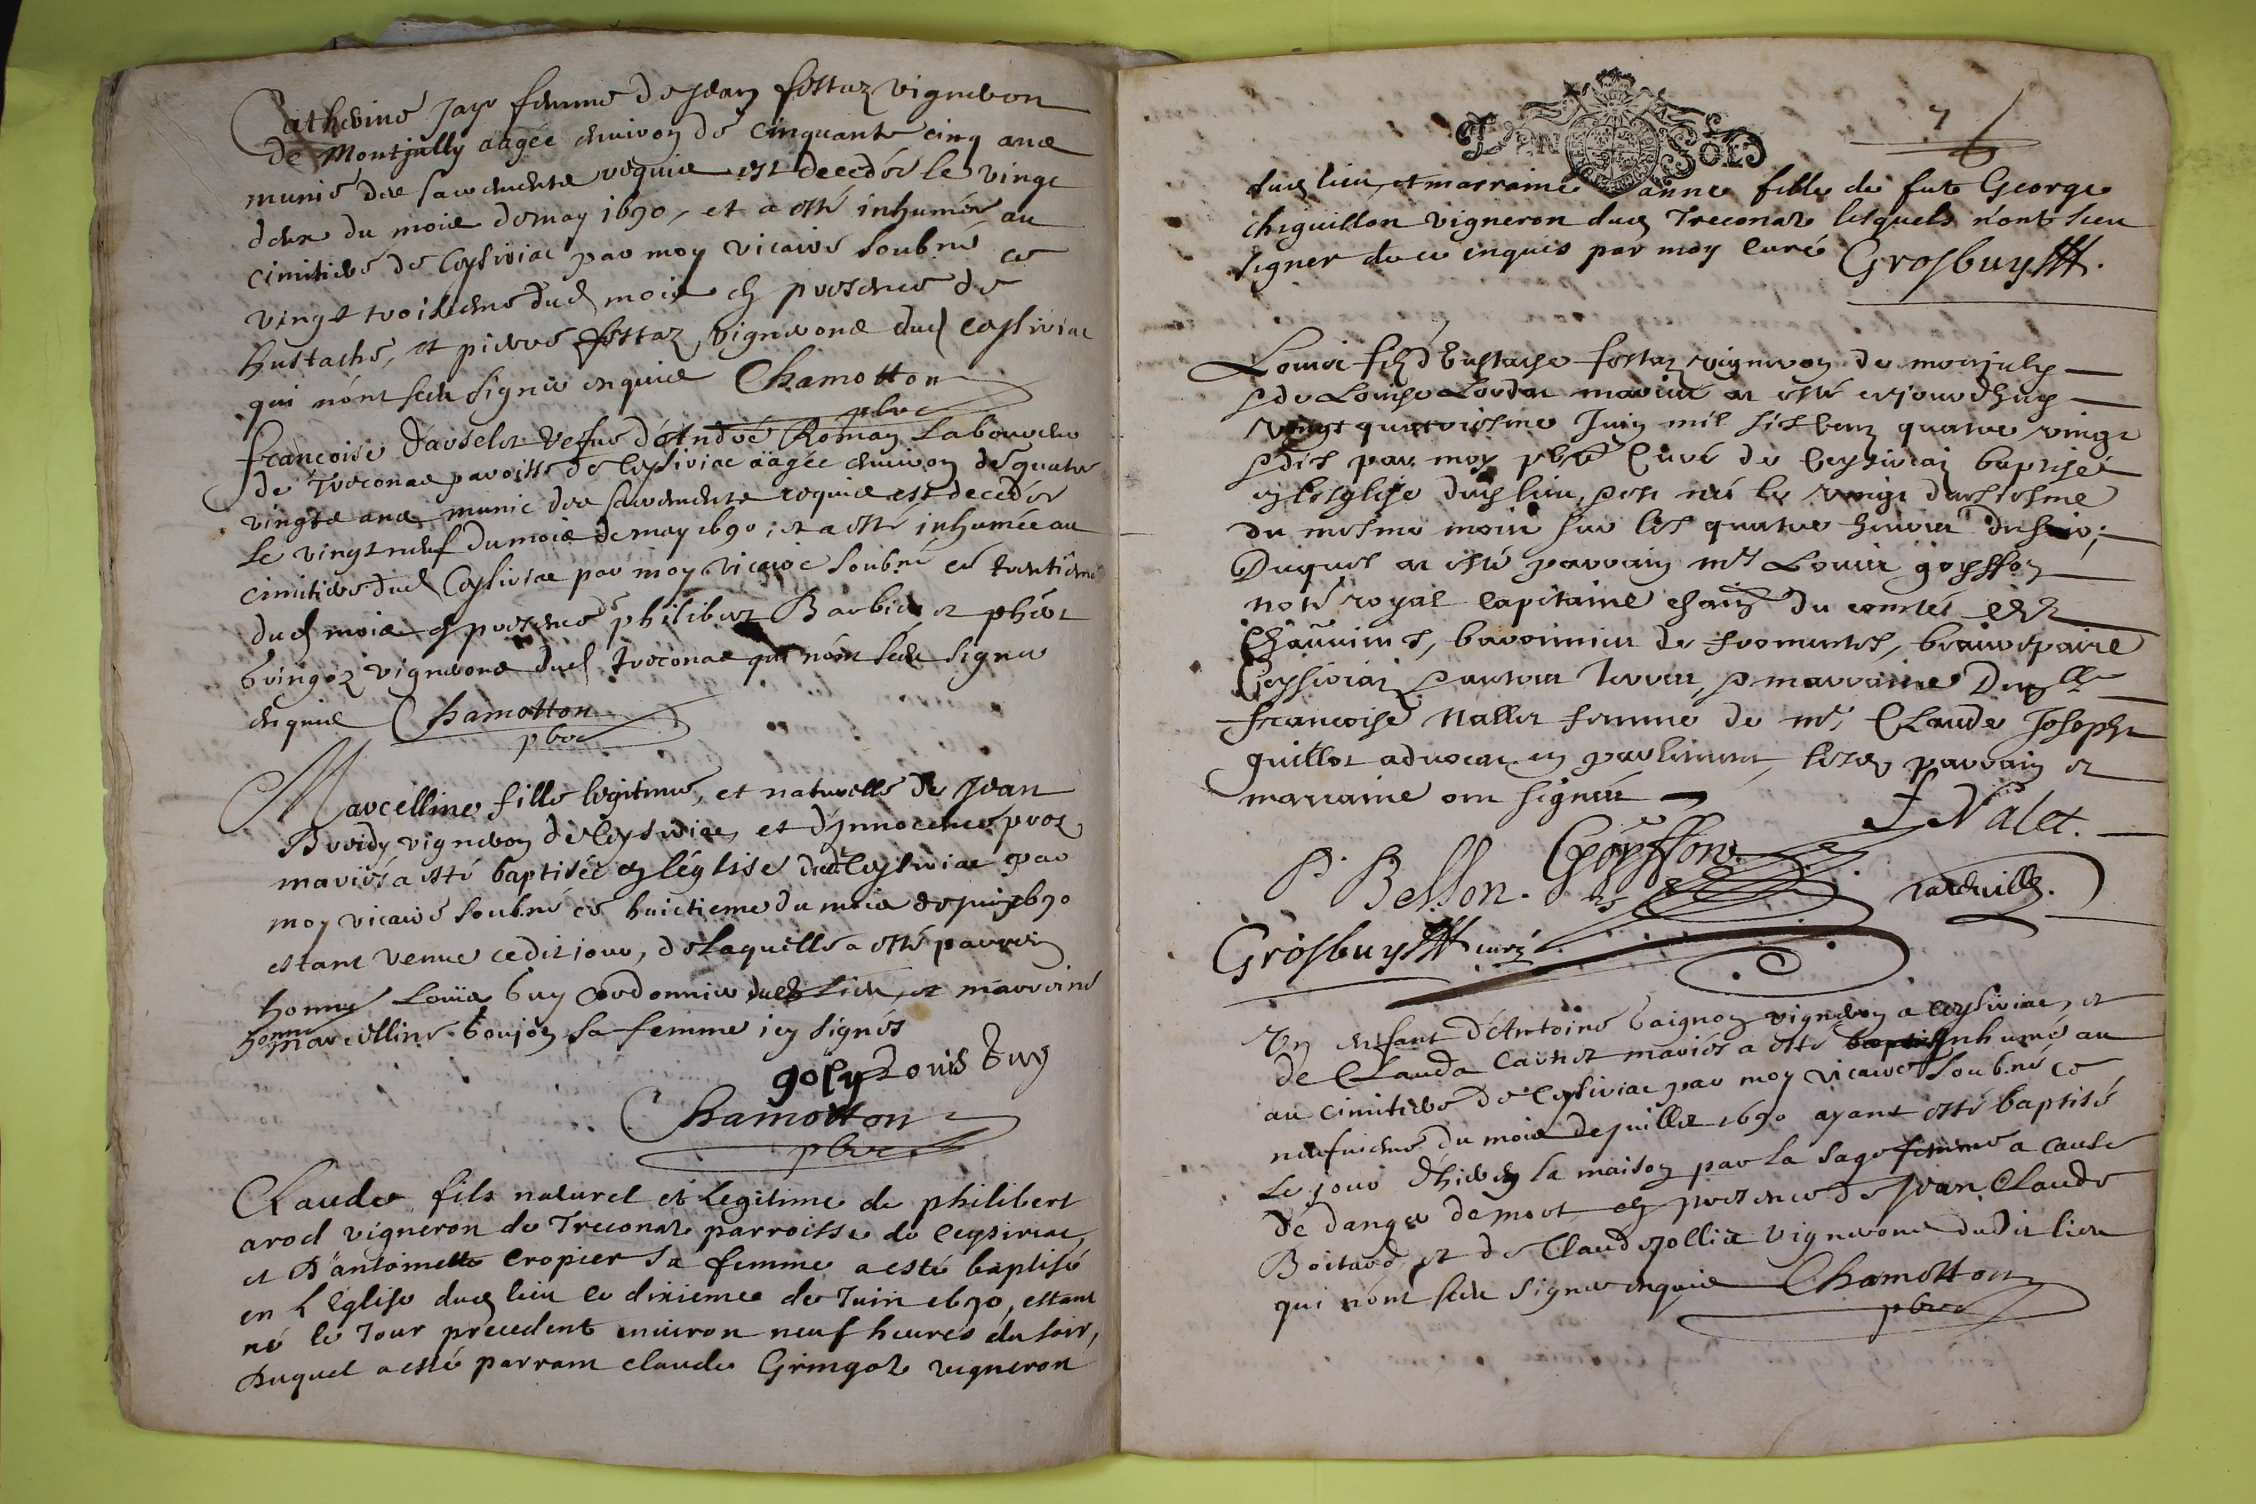 Catherine Jay femme de Jean fostaz vigneron
de Montjully aagée environ de cinquante cinq ans
munie des sacrements requis est decedée le vingt
deux du mois de may 1690, et a esté inhumée au
cimitiere de Ceysiriac par moy vicaire soubné ce
vingt troisieme dud mois en presence de
hustache, et pierre fostaz, vignerons dud Ceysiriac
qui nont sceu signer enquis Chamotton
pbre
francoise Darselot vefve d'André Roman laboureur
de Treconas paroisse de Ceysiriac aagée environ de quatre
vingts ans munie des sacrements requis est decedée
le vingt neuf du mois de may 1690, et a esté inhumée au
cimitiere dud Ceysiriac par moy vicaire soubné ce trentieme
dud mois en presence de philibert Barbier et phěot
gringoz vignerons dud Treconas qui nont sceu signer
enquis Chamotton
pbre
Marcelline fille legitime, et naturelle de Jean
Bredy vigneron de Ceysiriac, et d'Innocence proz
mariés a esté baptisée en léglise dud Ceysiriac par
moy vicaire soubné ce huictieme du mois de juin 1690
estant venue cedit jour, de laquelle a esté parrein
honne Loüis Guy cordonnier dud lieu, et marreine
honne marcelline goujon sa femme icy signés
goly Louis Guy
Chamotton
pbre
Claude fils naturel et legitime de philibert
arod vigneron de Treconas parroisse de Ceysiriac,
et D'antoinette Cropier sa femme a esté baptisé
en l'Eglise dud lieu le dixieme de Juin 1690, estant
né le Jour precedent environ neuf heures du soir,
Duquel a esté parrain claude Gringoz vigneron
7
DEUX SOLS
dud lieu, et marraine anne fille de fute George
chiquillon vigneron dud Treconas lesquels n'ont sceu
signer de ce enquis par moy curé Grosbuysst.
Louis fils d'Eustache fostaz vigneron de monjuly
et de Louise Loudat mariés a esté cejourdhuy
vingt quatriesme Juin mil six cent quatre vingt
et dix par moy pbre Curé de Ceysiriaz baptisé
en lesglise dud lieu, et est né le vingt deuxiesme
du mesme mois sur les quatre heures du soir;
Duquel a esté parrain mre Louis goyffon
note royal Capitaine chast du comté de
Chauvirey, baronnies de fromentes, beaurepaire
Ceysiriaz et autres terres, et marraine Damlle
francoise Nallet femme de mr Claude Joseph
guillot advocat en parlement, lesd parrain et
marraine ont signés
f Nalet.
P. Besson. Goyffon
Grosbuysst curé
Un enfant d'Antoine Gaignon vigneron a Ceysiriac, et
de Clauda Carrier mariés a esté inhumé au
au cimitiere de Ceysiriac par moy vicaire soubné ce
neufvieme du mois de juillet 1690 ayant esté baptisé
le jour d'hier en la maison par la sage femme a cause
de danger de mort en presence de Jean Claude
Boitard et de Claude jollier vignerons dudit lieu
qui nont sceu signer enquis Chamotton
pbre